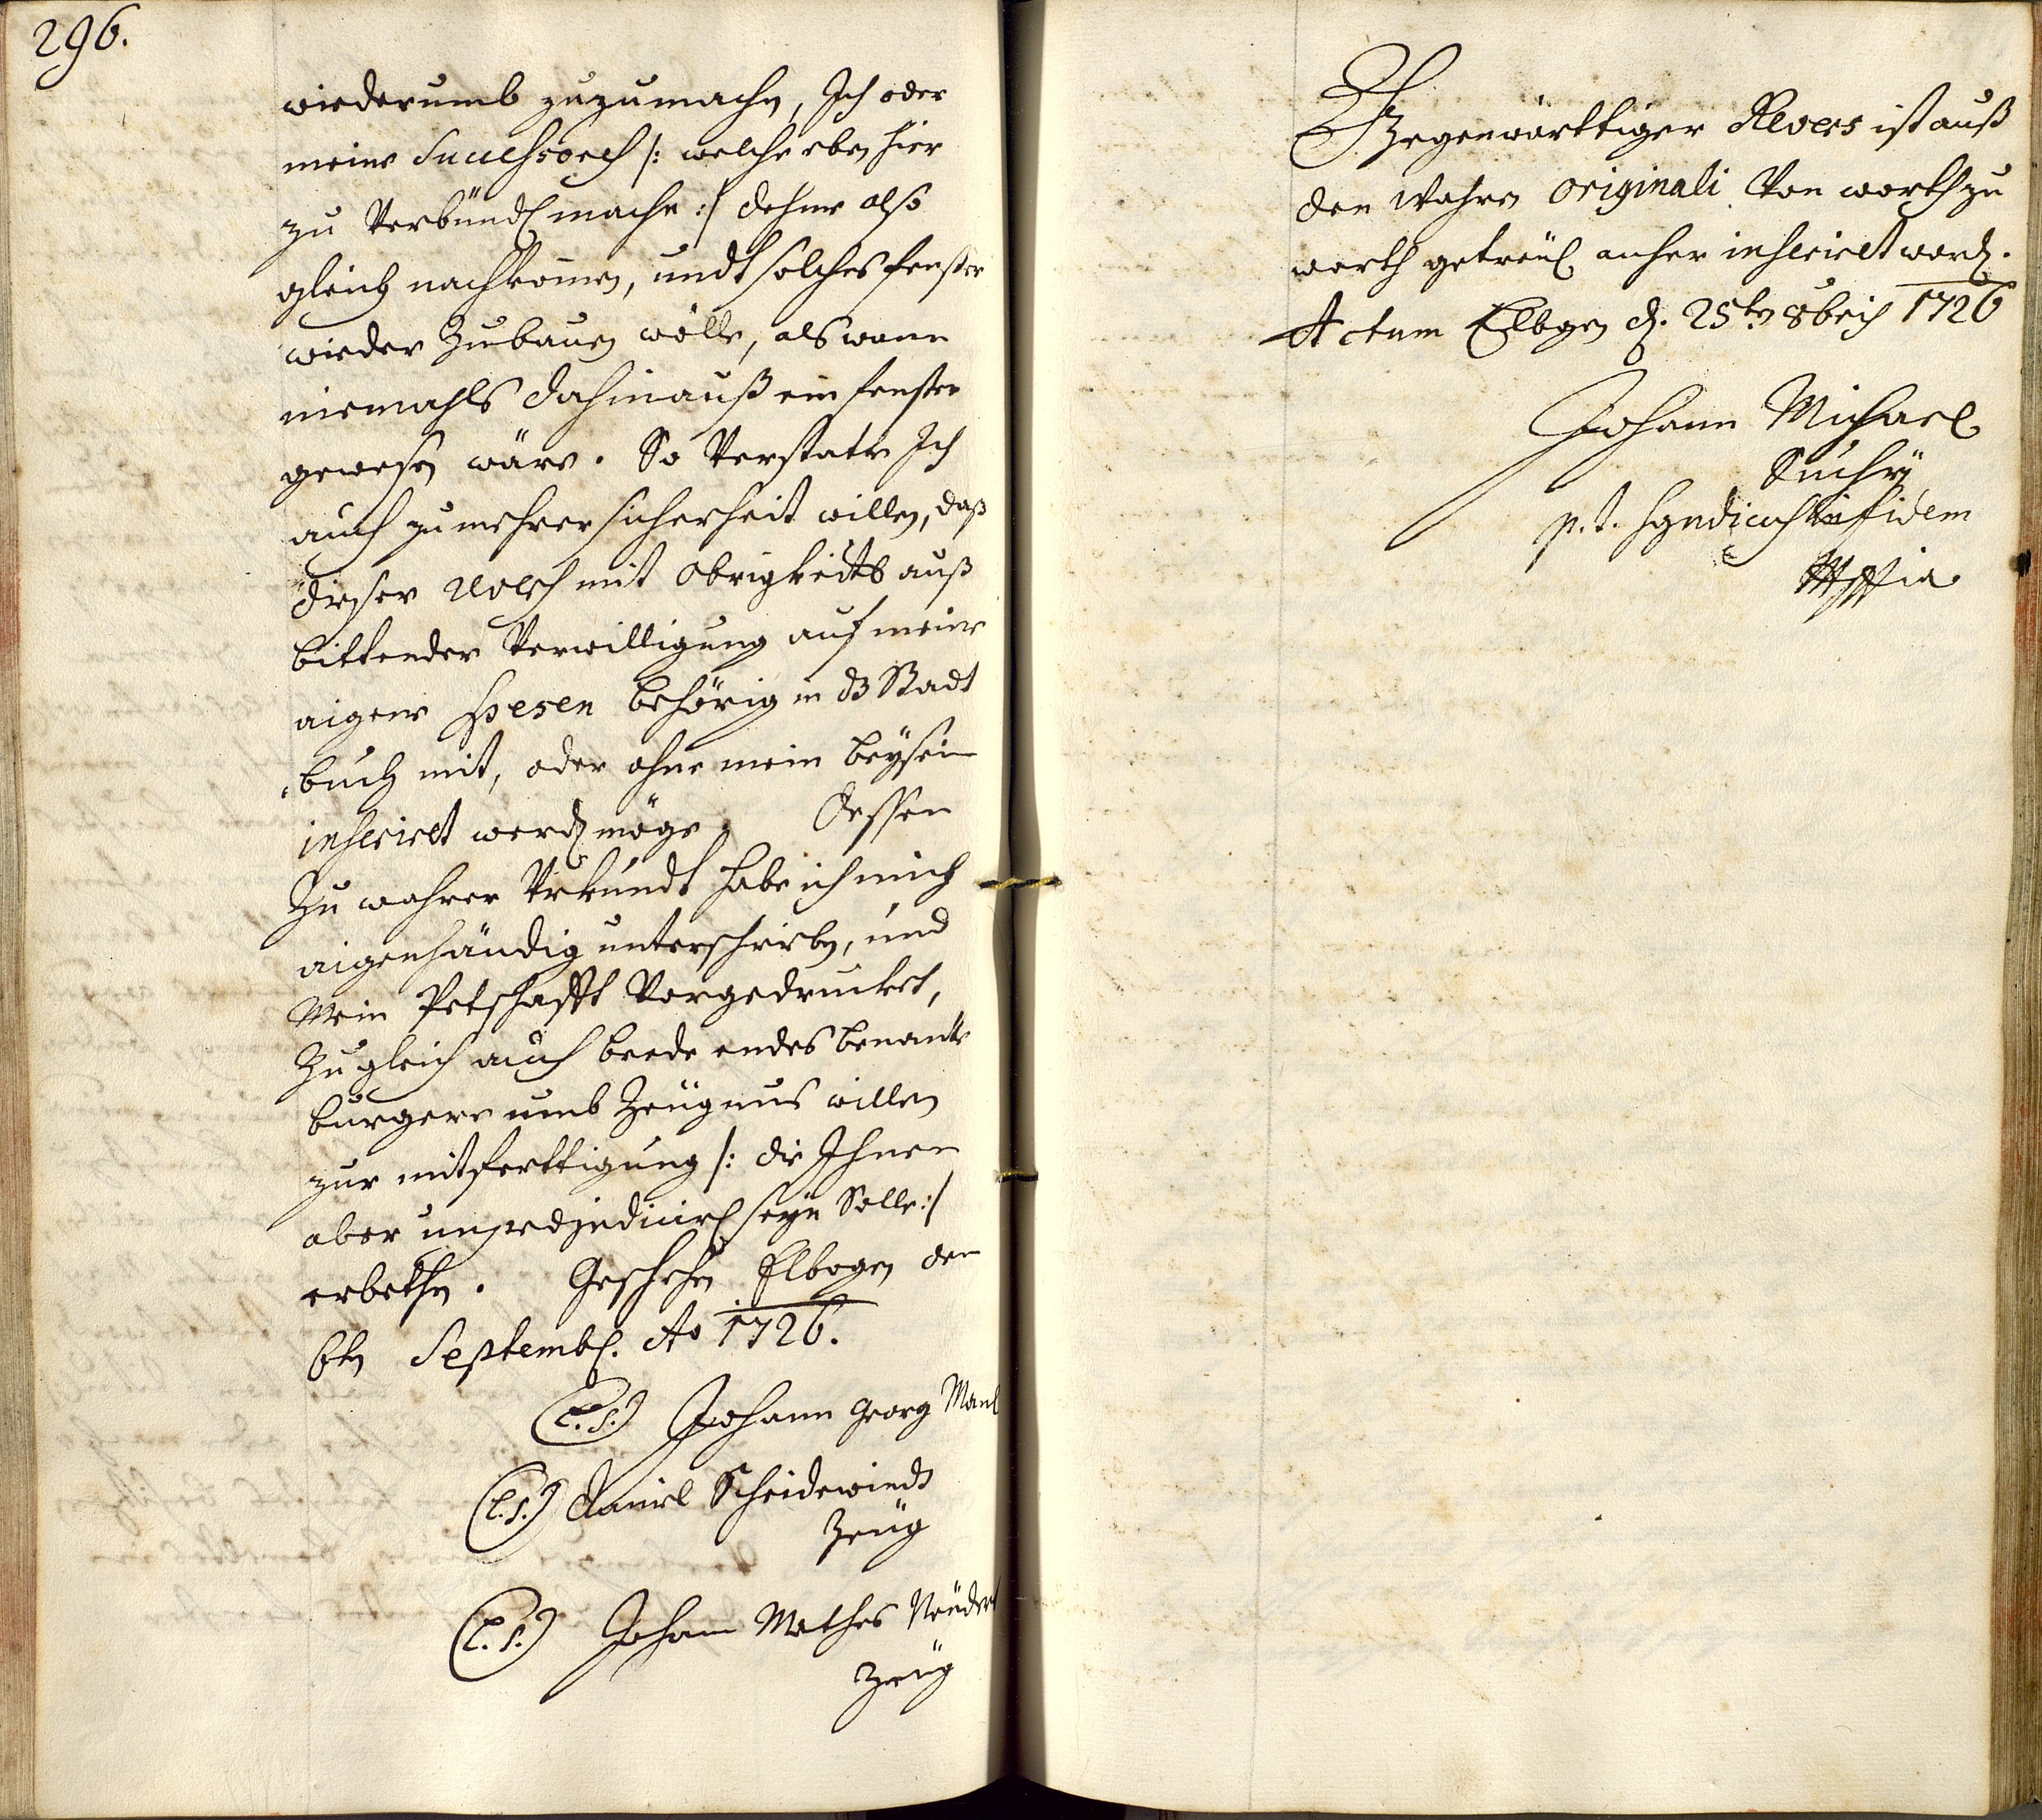 296.
wiederumb zuzumachen, Ich oder
meine Successores /: welche eben hier
zu Verbündl mache :/ dehme also
gleich nachkom̄en, undt solches fenster
wieder Zubauen wölle, als wann
niemahls dahinauß ein fenster
gewesen wäre. So Verstatte Ich
auch zu mehrer sicherheit willen, daß
dieser Revers mit Obrigkeitl auß
bittender Verwilligung auf meine
aigene spesen behörig in dß Stadt
buch mit, oder ohne mein beÿsein
inseriret werden möge. Dessen
Zu wahrer Urkundt habe ich mich
aigenhändig unterschrieben, und
Mein Petschafft Vorgedrucket,
Zugleich auch beede endes benante
bürgere umb Zeügnus willen
zur mitferttigung /: die Ihnen
aber unpraejudicirl seÿn Solle :/
erbethen. Geschehen Elbogen den
6ten Septembr. Ao 1726.
(L.S.) Johann Georg
(L.S.) Daniel Scheidewindt
Zeüg
(L.S.) Johann Mathes
Zeüg
Gegenwärttiger Revers ist auß
den Wahren Originali Von worth zu
worth getreül anher inseriret word.
Actum Elbogen d. 25ten 8bris 1726
Johann Michael
Suchÿ
p.t. Syndicus in fidem